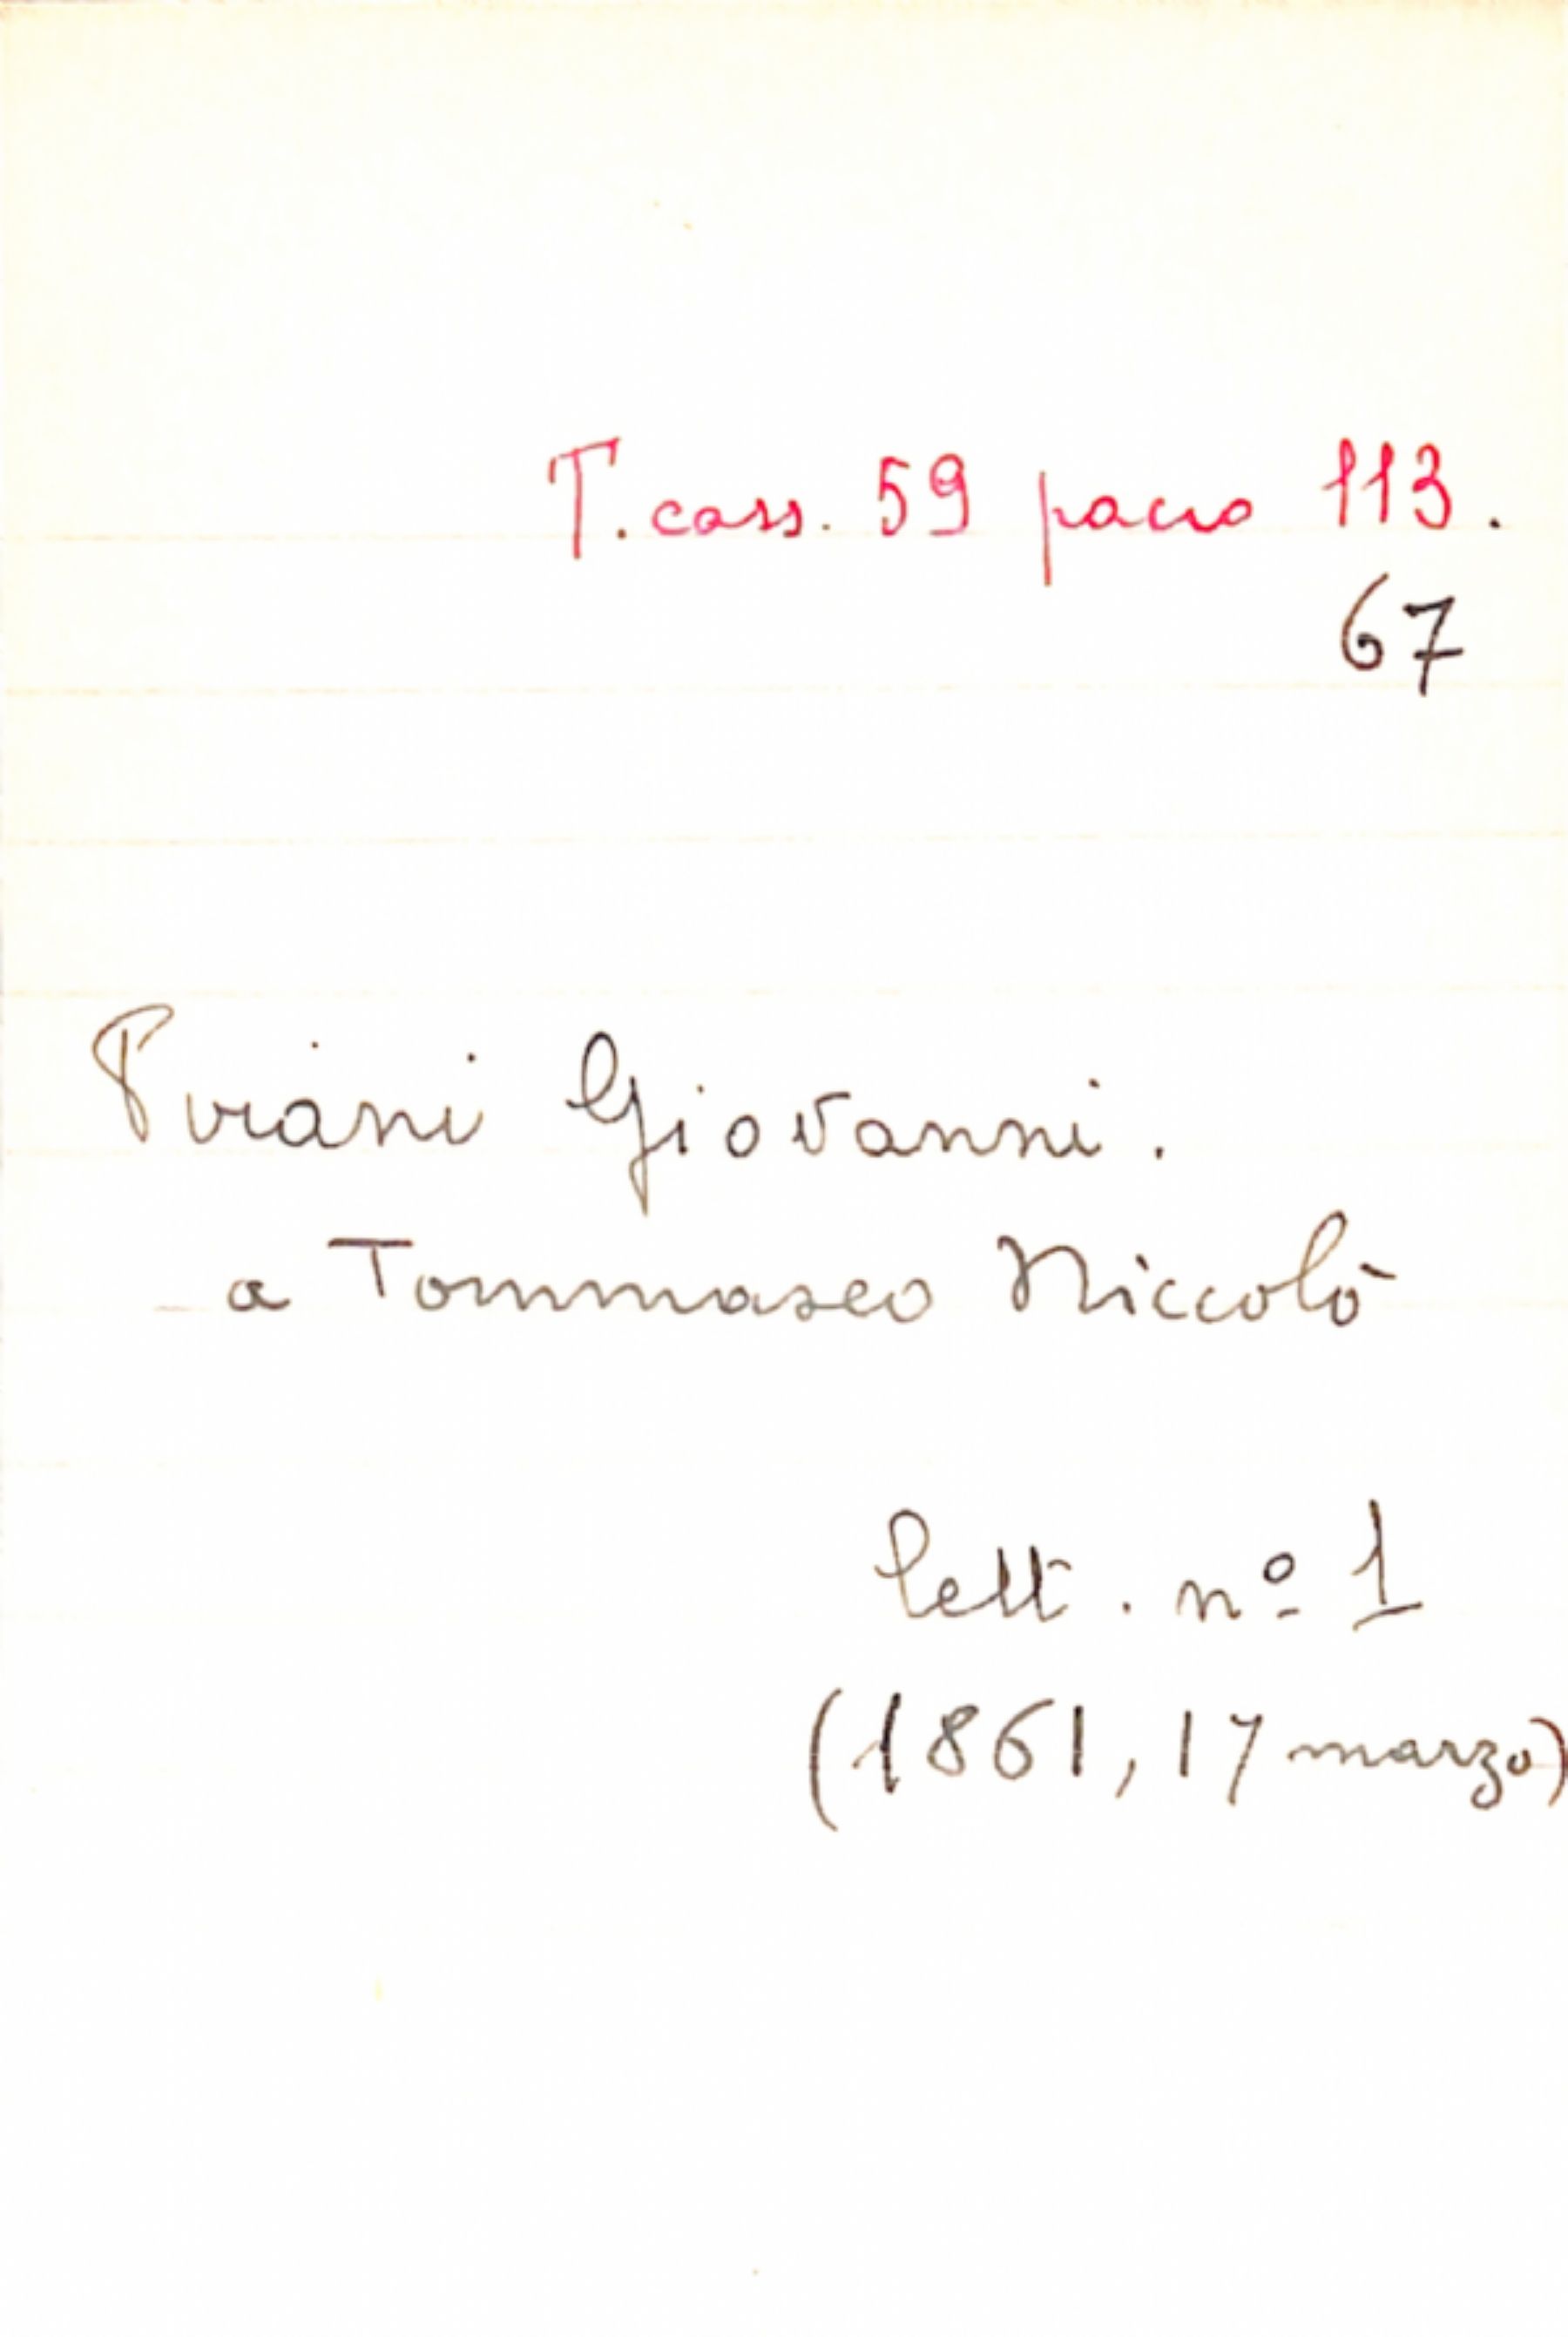 T. cass. 59 pacco 113.
67
Pirani Giovanni.
a Tommaseo Niccolò
lett. nº 1
(1861, 17 marzo)